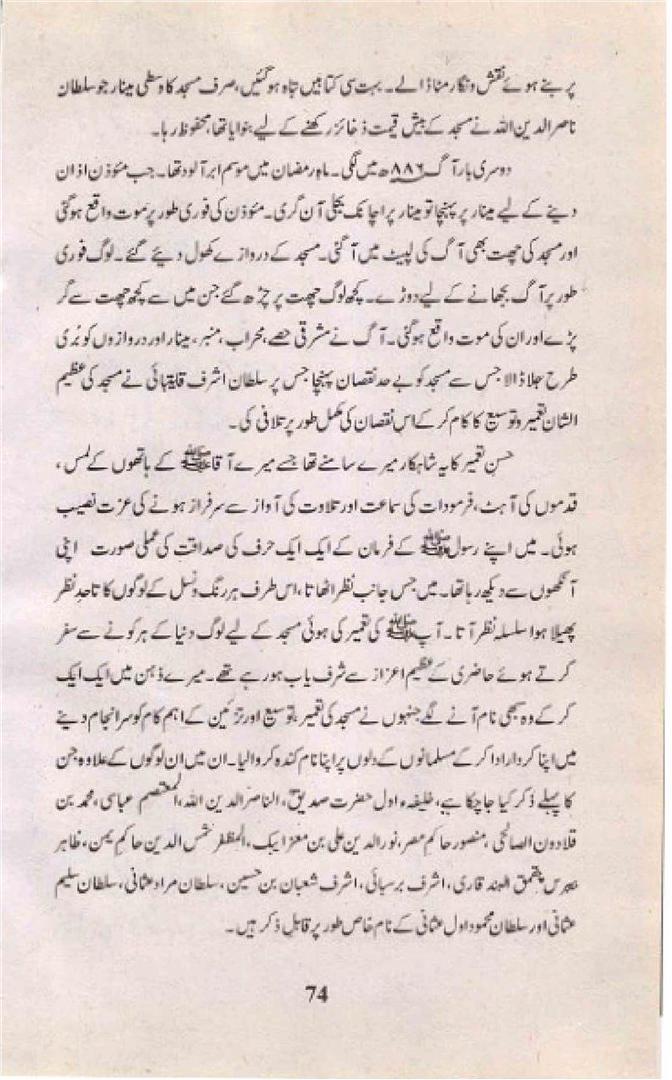 پر بنے ہوئے نقش و نگار مٹا ڈالے۔ بہت سی کتابیں تباہ ہو گئیں، صرف مسجد کا وسطی مینار جو سلطان
ناصر الدین اللہ نے مسجد کے بیش قیمت ذخائر رکھنے کے لیے بنوایا تھا، محفوظ رہا۔
دوسری بار آگ ۸۸۶ھ میں لگی۔ ماہِ رمضان میں موسم ابر آلود تھا۔ جب مئوذن اذان
دینے کے لیے مینار پر پہنچا تو مینار پر اچانک بجلی آن گری۔ مئوذن کی فوری طور پر موت واقع ہو گئی
اور مسجد کی چھت بھی آگ کی لپیٹ میں آ گئی۔ مسجد کے دروازے کھول دیئے گئے۔ لوگ فوری
طور پر آگ بجھانے کے لیے دوڑے۔ کچھ لوگ چھت پر چڑھ گئے جن میں سے کچھ چھت سے گر
پڑے اور ان کی موت واقع ہو گئی۔ آگ نے مشرقی حصے، محراب، منبر، مینار اور دروازوں کو بُری
طرح جلا ڈالا جس سے مسجد کو بے حد نقصان پہنچا جس پر سلطان اشرف قایتبائی نے مسجد کی عظیم
الشان تعمیر و توسیع کا کام کر کے اس نقصان کی مکمل طور پر تلافی کی۔
حسنِ تعمیر کا یہ شاہکار میرے سامنے تھا جسے میرے آقا ﷺ کے ہاتھوں کے لمس،
قدموں کی آہٹ، فرمودات کی سماعت اور تلاوت کی آواز سے سرفراز ہونے کی عزت نصیب
ہوئی۔ میں اپنے رسول ﷺ کے فرمان کے ایک ایک حرف کی صداقت کی عملی صورت اپنی
آنکھوں سے دیکھ رہا تھا۔ میں جس جانب نظر اٹھاتا، اس طرف ہر رنگ و نسل کے لوگوں کا تاحدِ نظر
پھیلا ہوا سلسلہ نظر آتا۔ آپ ﷺ کی تعمیر کی ہوئی مسجد کے لیے لوگ دنیا کے ہر کونے سے سفر
کرتے ہوئے حاضری کے عظیم اعزاز سے شرف یاب ہو رہے تھے۔ میرے ذہن میں ایک ایک
کر کے وہ سبھی نام آنے لگے جنہوں نے مسجد کی تعمیر، توسیع اور تزئین کے اہم کام کو سرانجام دینے
میں اپنا کردار ادا کر کے مسلمانوں کے دلوں پر اپنا نام کندہ کروا لیا۔ ان میں ان لوگوں کے علاوہ جن
کا پہلے ذکر کیا جا چکا ہے، خلیفہء اول حضرت صدیقؓ، الناصر الدین اللہ، المعتصم عباسی، محمد بن
قلادون الصالحی، منصور حاکم مصر، نور الدین علی بن معز ایبک، المظفر شمس الدین حاکم یمن، ظاہر
چقمق الہند قاری، اشرف برسبائی، اشرف شعبان بن حسین، سلطان مراد عثمانی، سلطان سلیم
عثمانی اور سلطان محمود اول عثمانی کے نام خاص طور پر قابلِ ذکر ہیں۔
74